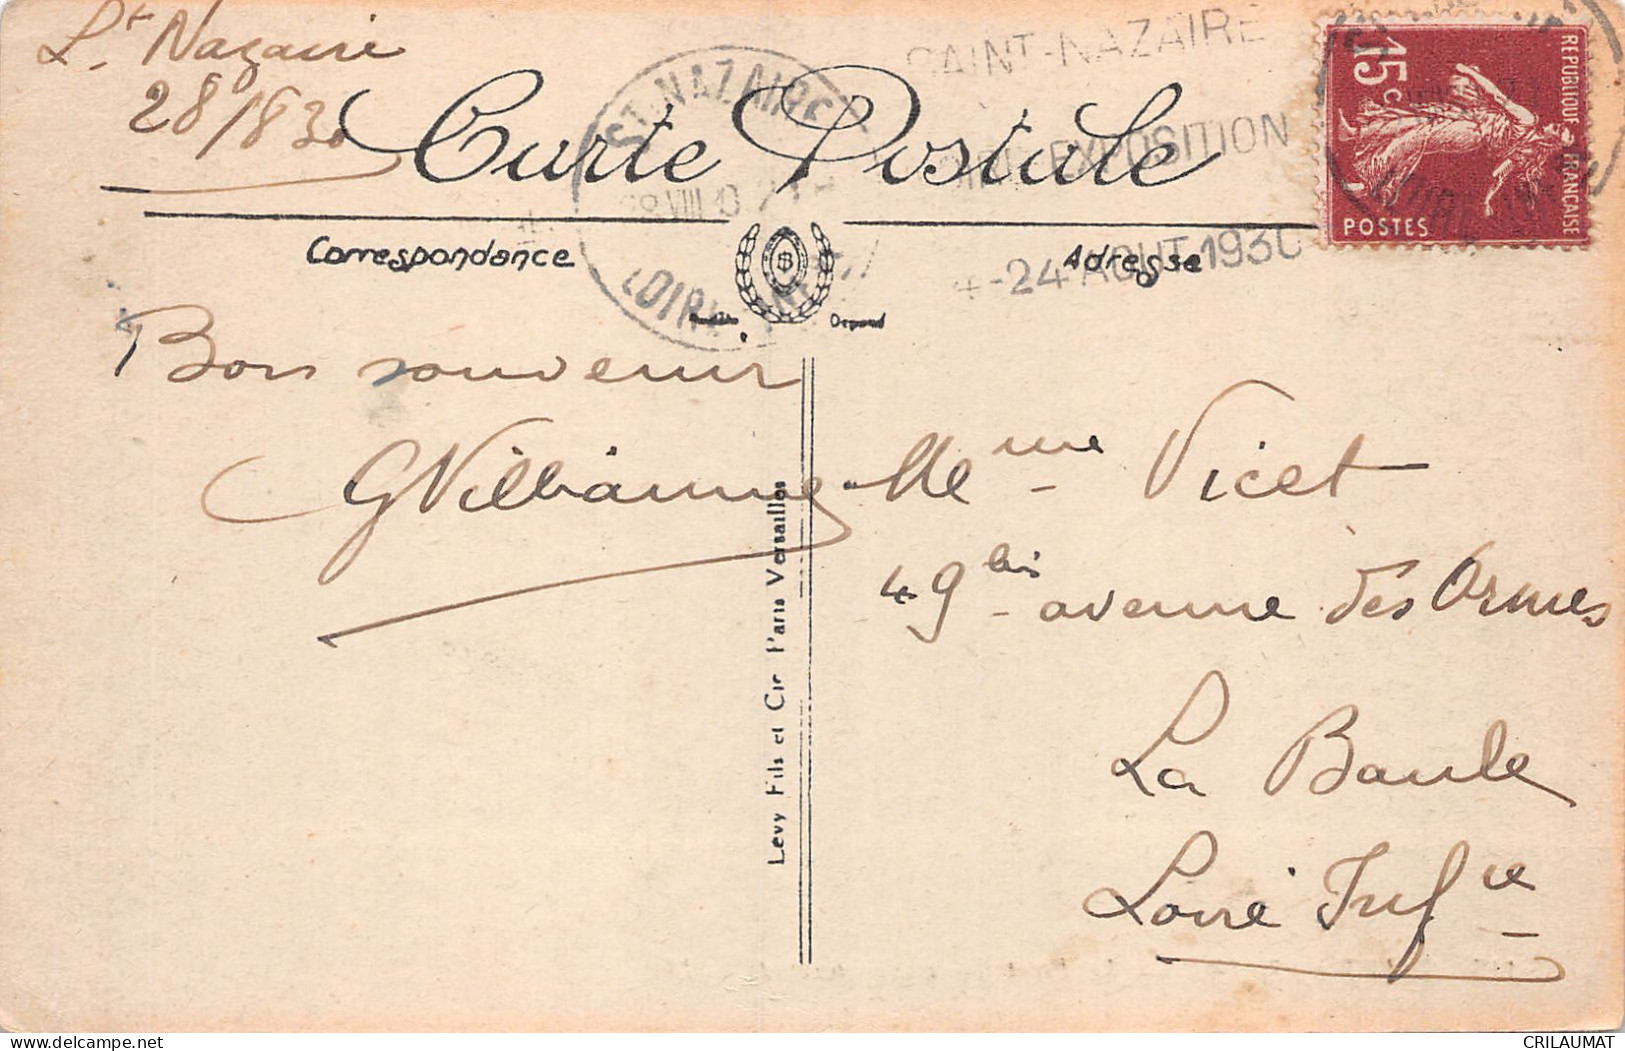 St Nazaire
28/8 30
SAINT-NAZAIRE
EXPOSITION
-24 AOUT 1930
ST-NAZAIRE
28 VIII 30
LOIRE INFRE
15c
REPUBLIQUE FRANÇAISE
POSTES
Carte Postale
Correspondance
Adresse
Bon souvenir
GVillianne
Mme Vicet
49 bis avenue des Ormes
La Baule
Loire Infre
Levy Fils et Cie Paris Versailles
CRILAUMAT